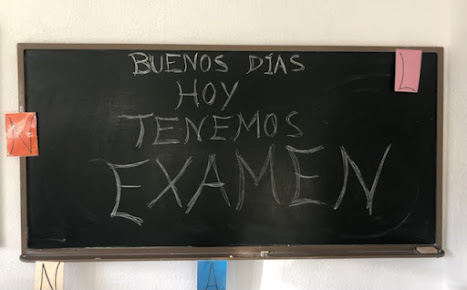 BUENOS DÍAS
HOY
TENEMOS
EXAMEN
N
A